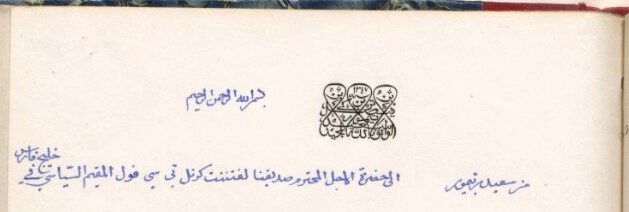 بسم الله الرحمن الرحيم
١٣٤٧
من سعيد بن تيمور
الى حضرة الاجل المحترم صديقنا لفتننت كرنل تي سي فول المقيم السياسي في
خليج فارس